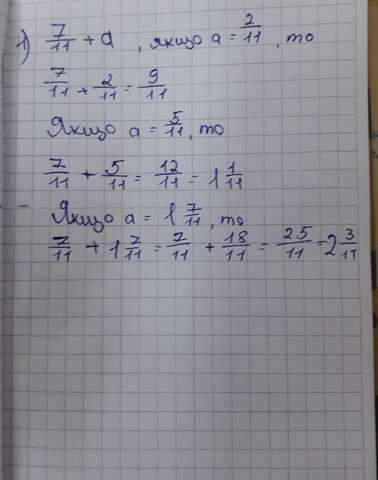 1) 7/11 + a, якщо a = 2/11, то
7/11 + 2/11 = 9/11
Якщо a = 5/11, то
7/11 + 5/11 = 12/11 = 1 1/11
Якщо a = 1 7/11, то
7/11 + 1 7/11 = 7/11 + 18/11 = 25/11 = 2 3/11